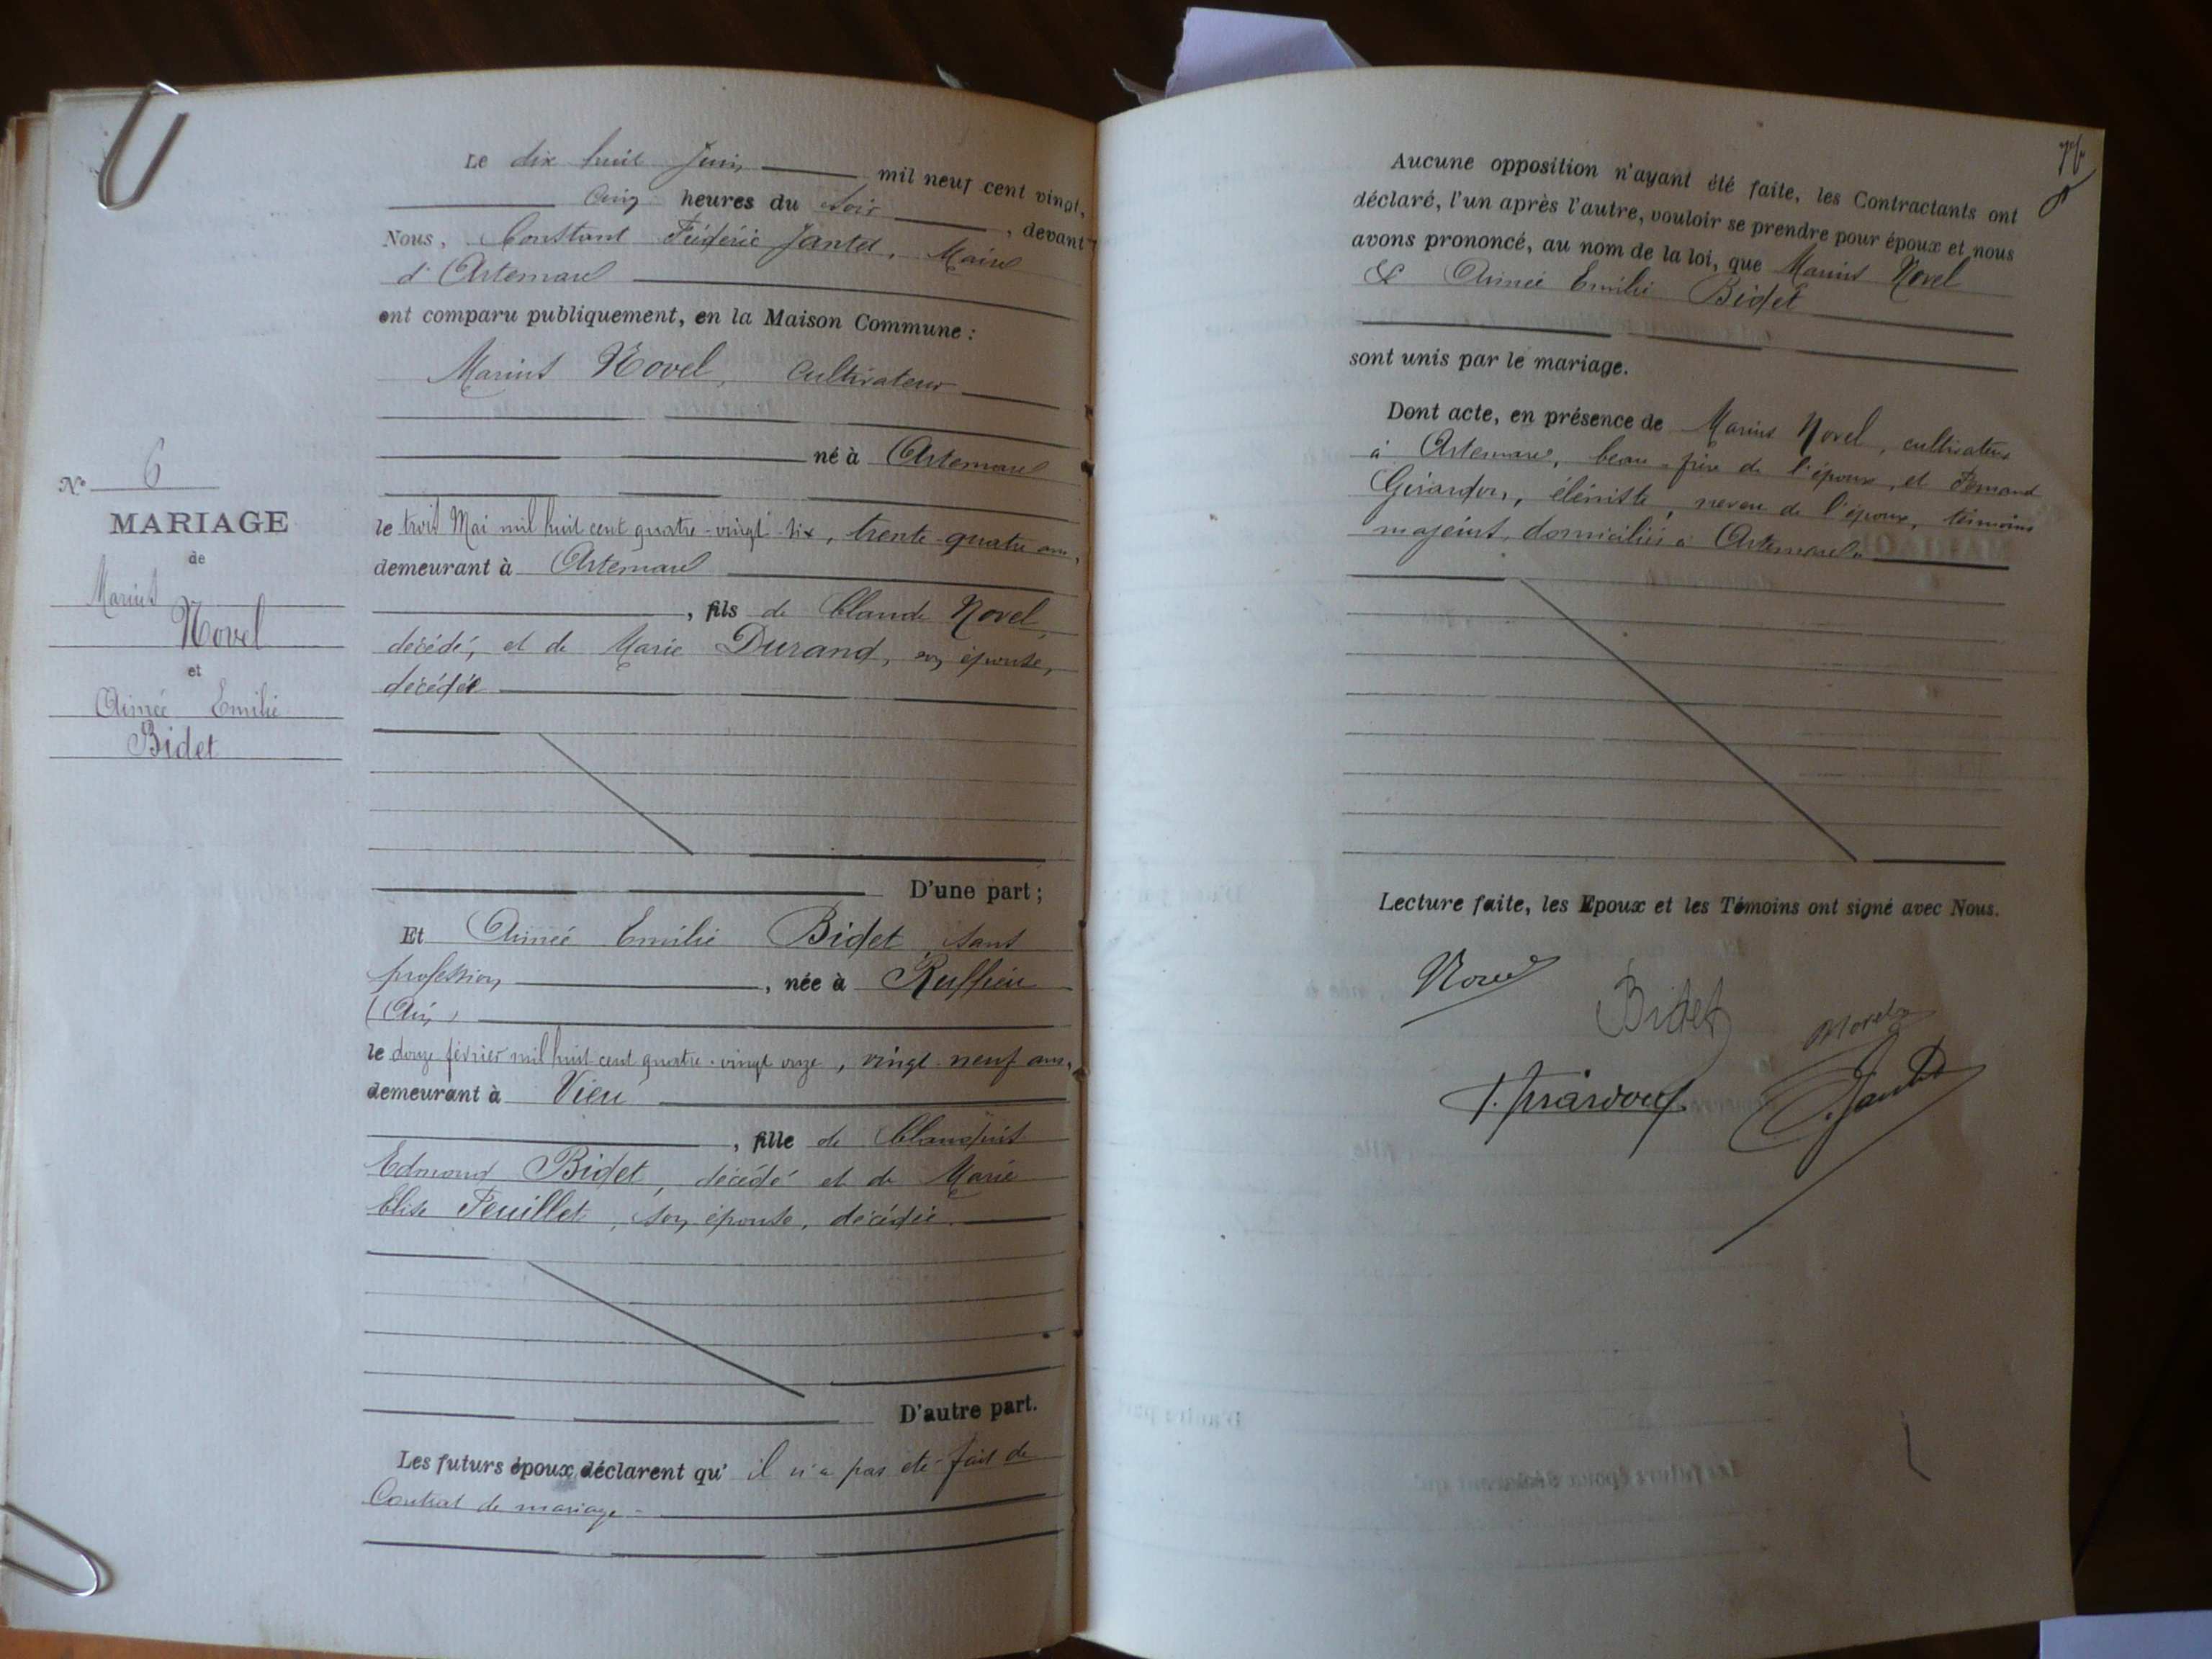 Le dix huit Juin mil neuf cent vingt,
cinq heures du soir, devant
Nous, Constant Frédéric Jantet, Maire
d'Artemare
ont comparu publiquement, en la Maison Commune :
Marius Novel, Cultivateur
né à Artemare
le trois Mai mil huit cent quatre-vingt six, trente-quatre ans,
demeurant à Artemare
, fils de Claude Novel,
décédé, et de Marie Durand, son épouse,
décédée
D'une part ;
Et Aimée Emilie Bidet, sans
profession, née à Ruffieu
(Ain)
le douze février mil huit cent quatre-vingt onze, vingt-neuf ans,
demeurant à Vieu
, fille de Claudius
Edmond Bidet, décédé et de Marie
Elise Feuillet, son épouse, décédée.
D'autre part.
Les futurs époux déclarent qu'il n'a pas été fait de
Contrat de mariage -
N° 6
MARIAGE
de
Marius
Novel
et
Aimée Emilie
Bidet
76
Aucune opposition n'ayant été faite, les Contractants ont
déclaré, l'un après l'autre, vouloir se prendre pour époux et nous
avons prononcé, au nom de la loi, que Marius Novel
& Aimée Emilie Bidet
sont unis par le mariage.
Dont acte, en présence de Marius Novel, cultivateur
à Artemare, beau-frère de l'époux, et Fernand
Girardon, ébéniste, neveu de l'époux, témoins
majeurs, domiciliés à Artemare.
Lecture faite, les Epoux et les Témoins ont signé avec Nous.
Novel
Bidet
Novel
F. Girardon
C. Jantet